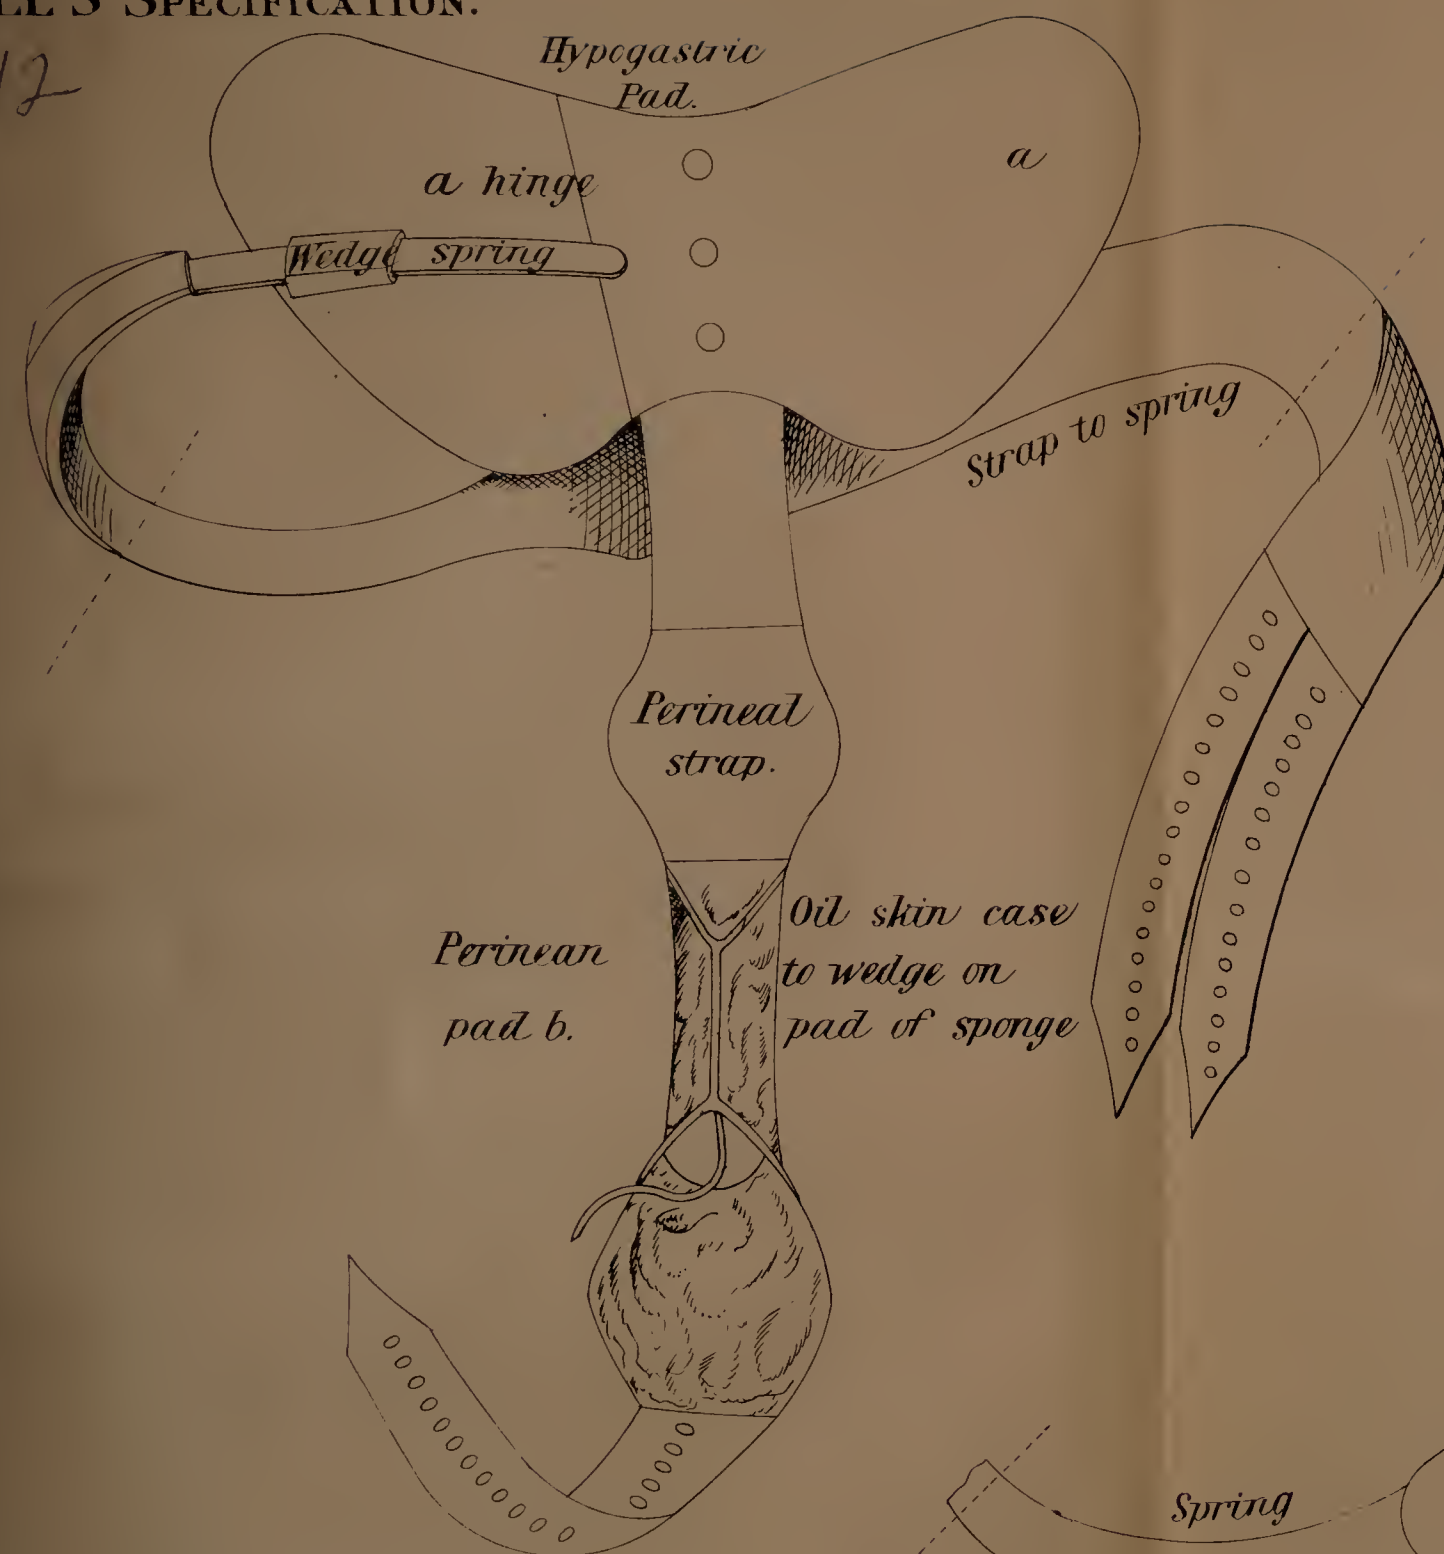 LL'S SPECIFICATION.
12
Hypogastric
Pad.
a hinge
a
Wedge spring
Strap to spring
Perineal
strap.
Perinean
pad b.
Oil skin case
to wedge on
pad of sponge
Spring